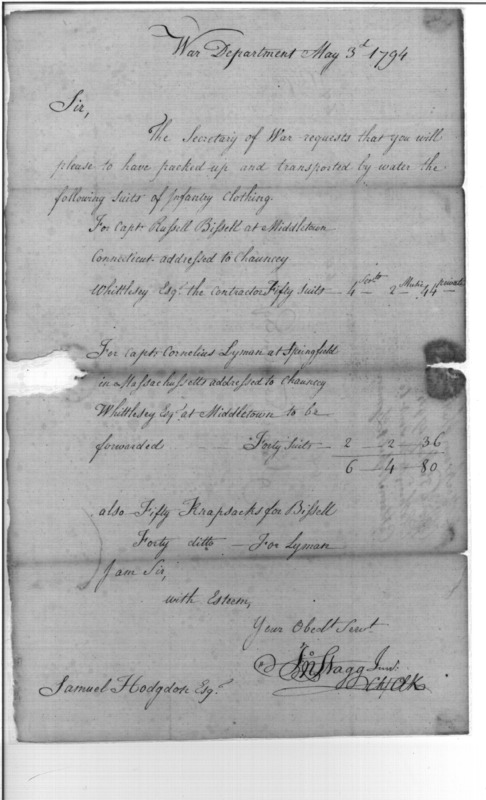 War Department May 3d 1794
Sir,
The Secretary of War requests that you will
please to have packed up and transported by water the
following Suits of Infantry Clothing.
For Capt. Russell Bissell at Middletown
Connecticut addressed to Chauncey
Whittlesey Esqr. the Contractor Fifty Suits — 4 Sergts 2 Music 44 privates
For Captn Cornelius Lyman at Springfield
in Massachussetts addressed to Chauncey
Whittlesey Esqr. at Middletown to be
forwarded — Forty Suits — 2 — 2 — 36
6 — 4 — 80
also Fifty Knapsacks for Bissell
Forty ditto — For Lyman
I am Sir,
with Esteem,
Your Obedt. Servt.
Jno Stagg Junr.
Ch. Clk
Samuel Hodgdon Esqr.